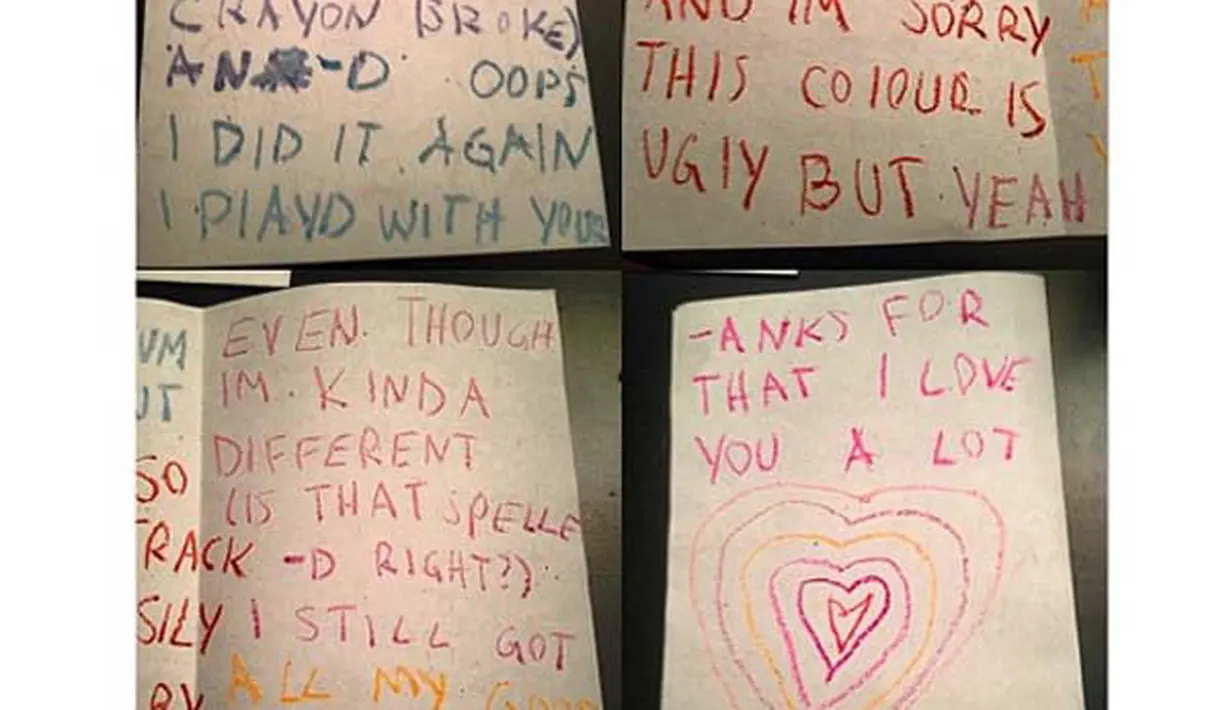 CRAYON BROKE)
AN -D OOPS
I DID IT AGAIN
I PLAYD WITH YOUR
AND IM SORRY
THIS COLOUR IS
UGLY BUT YEAH
EVEN THOUGH
IM KINDA
DIFFERENT
SO (IS THAT SPELLE
TRACK -D RIGHT?)
SILY I STILL GOT
RY ALL MY GOOD
-ANKS FOR
THAT I LOVE
YOU A LOT